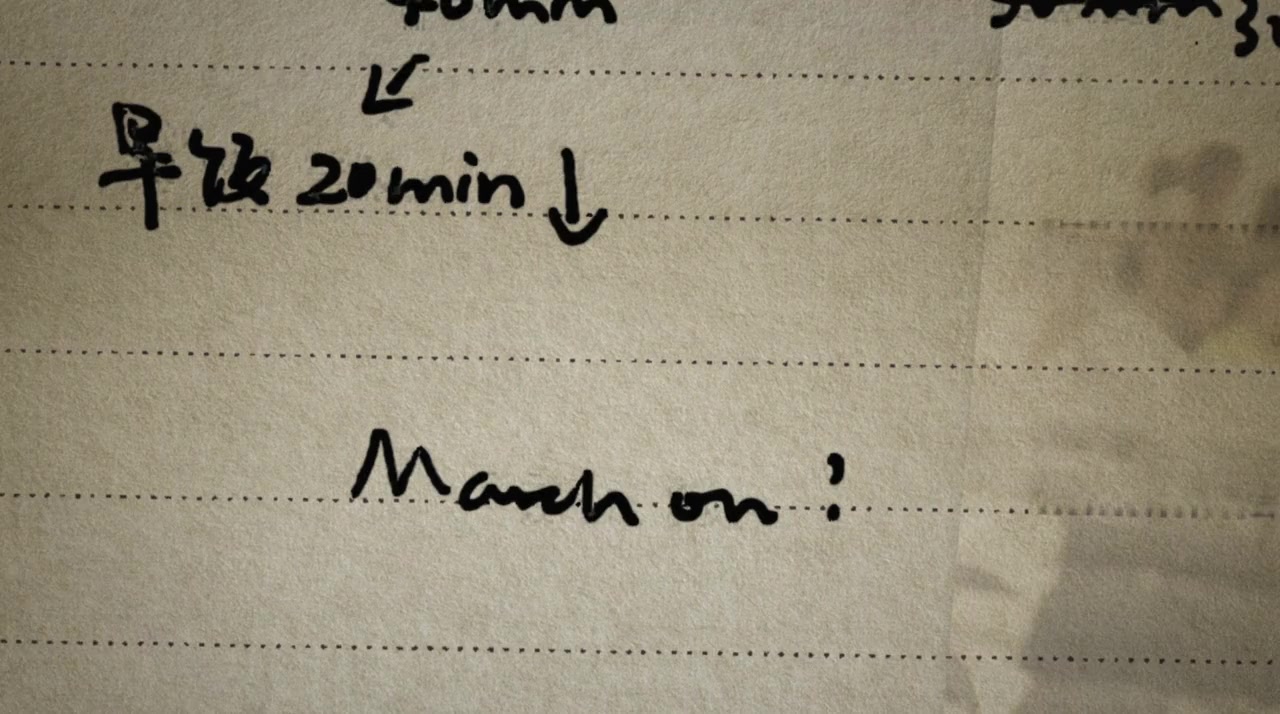 早饭 20min ↓
March on !